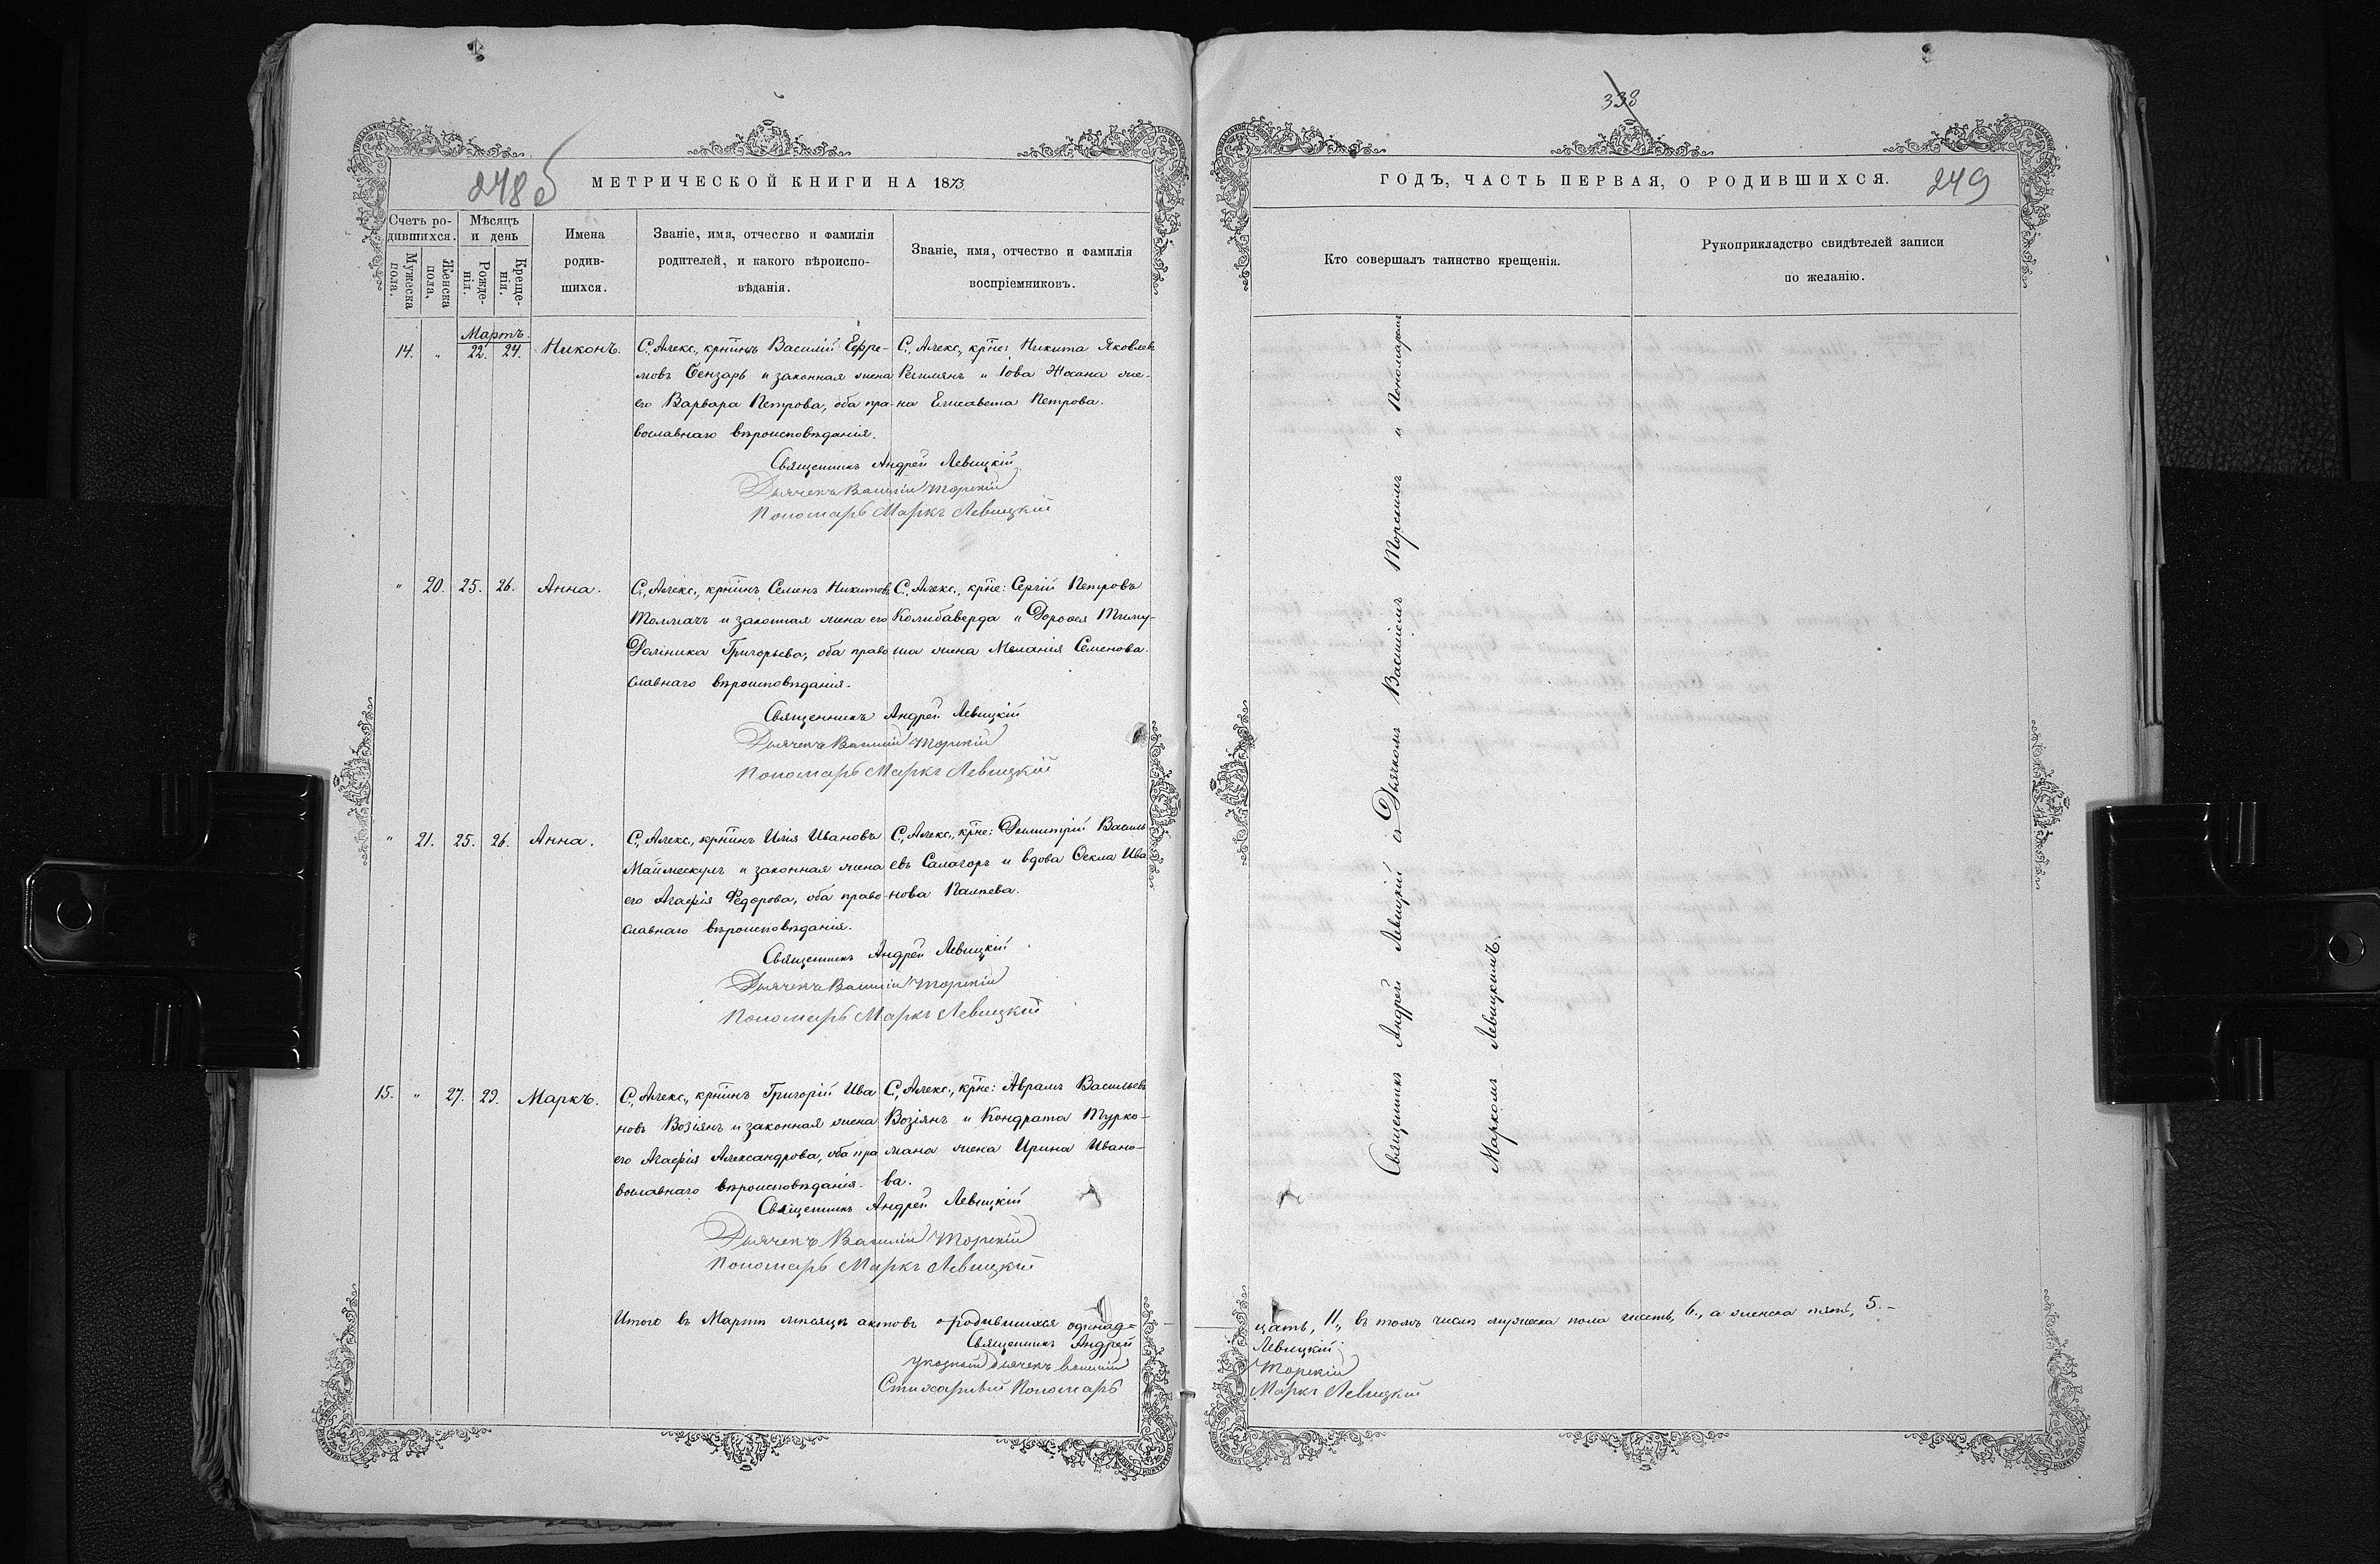 338
248 об
МЕТРИЧЕСКОЙ КНИГИ НА 1873
ГОДЪ, ЧАСТЬ ПЕРВАЯ, О РОДИВШИХСЯ.
249
Счетъ ро-
дившихся.
Мужеска
пола.
Женска
пола.
Мѣсяцъ
и день
Рожде-
нія.
Креще-
нія.
Имена
родив-
шихся.
Званіе, имя, отчество и фамилія
родителей, и какого вѣроиспо-
вѣданія.
Званіе, имя, отчество и фамилія
воспріемниковъ.
Кто совершалъ таинство крещенія.
Рукоприкладство свидѣтелей записи
по желанію.
Мартъ
14. „ 22. 24. Никонъ.
С. Алекс., крнинъ Василій Ефре-
мовъ Сензаръ и законная жена
его Варвара Петрова, оба пра-
вославнаго вѣроисповѣданія.
С. Алекс., крне: Никита Яковлевъ
и Іова Жхана же-
на Елисавета Петрова.
Священникъ Андрей Левицкій
Дьячекъ Василій Торскій
Пономарь Маркъ Левицкій
„ 20. 25. 26. Анна.
С. Алекс., крнинъ Семенъ Никитовъ
Толмачъ и законная жена его
Домника Григорьева, оба право
славнаго вѣроисповѣданія.
С. Алекс., крне: Сергій Петровъ
Колибаверда и Дороѳея Тиму-
ша жена Меланія Семенова.
Священникъ Андрей Левицкій
Дьячекъ Василій Торскій
Пономарь Маркъ Левицкій
„ 21. 25. 26. Анна.
С. Алекс., крнинъ Илія Ивановъ
Маймескулъ и законная жена
его Агафія Федорова, оба право-
славнаго вѣроисповѣданія.
С. Алекс., крне: Димитрій Василь
евъ Салагоръ и вдова Ѳекла Ива
нова Палпева.
Священникъ Андрей Левицкій
Дьячекъ Василій Торскій
Пономарь Маркъ Левицкій
15. „ 27. 29. Маркъ.
С. Алекс., крнинъ Григорій Ива
новъ Возіянъ и законная жена
его Агафія Александрова, оба пра
вославнаго вѣроисповѣданія.
С. Алекс., крне: Аврамъ Васильевъ
Возіянъ и Кондрата Турко-
мана жена Ирина Ивано-
ва.
Священникъ Андрей Левицкій
Дьячекъ Василій Торскій
Пономарь Маркъ Левицкій
Итого въ Мартѣ мѣсяцѣ актовъ о родившихся одинад-
цать, 11, въ томъ числѣ мужеска пола шесть, 6, а женска пять, 5.
Священникъ Андрей Левицкій
Указный Дьячекъ Василій Торскій
Стихарный Пономарь Маркъ Левицкій
Священникъ Андрей Левицкій съ Дьячкомъ Василіемъ Торскимъ и Пономаремъ
Маркомъ Левицкимъ.